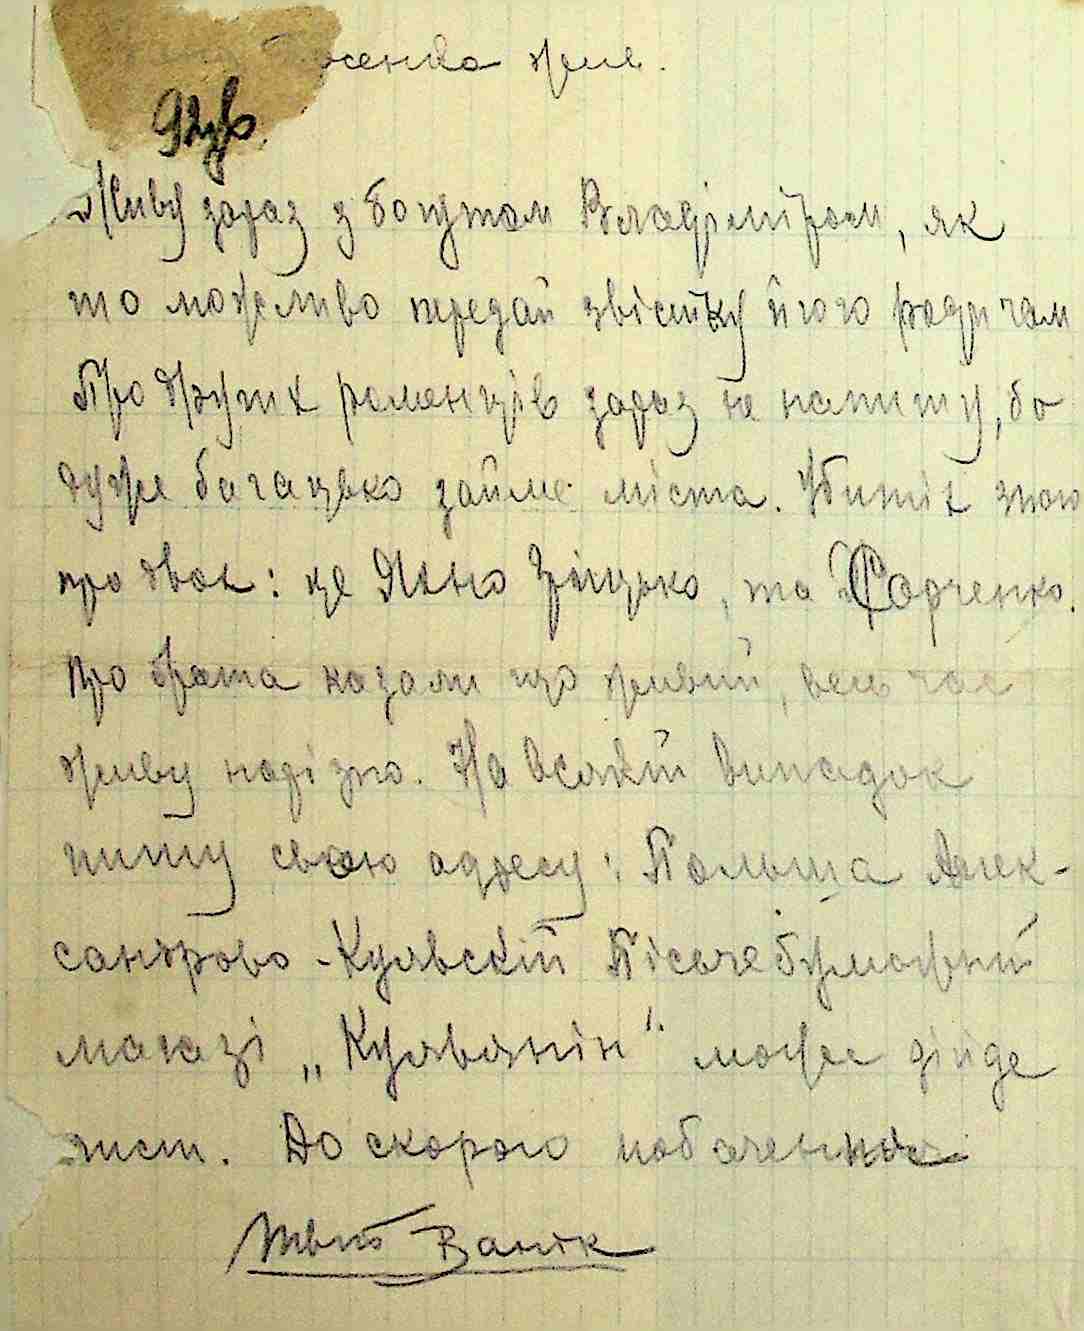 92зв.
Живу зараз з Богутом Владіміром, як
то можливо передай звістку його родичам
Про других роменців зараз не напишу, бо
дуже богацько займе міста. Убитіх знаю
про двох: це Яхно Гріцько, та Садченко.
Про брата казали що живий, весь час
живу надією. На всякій випадок
пишу свою адресу: Польша Алек-
сандрово-Куявскій Пісьчебумажний
магазі „Куявянін" може дійде
лист. До скорого побачення
Твій Ванік